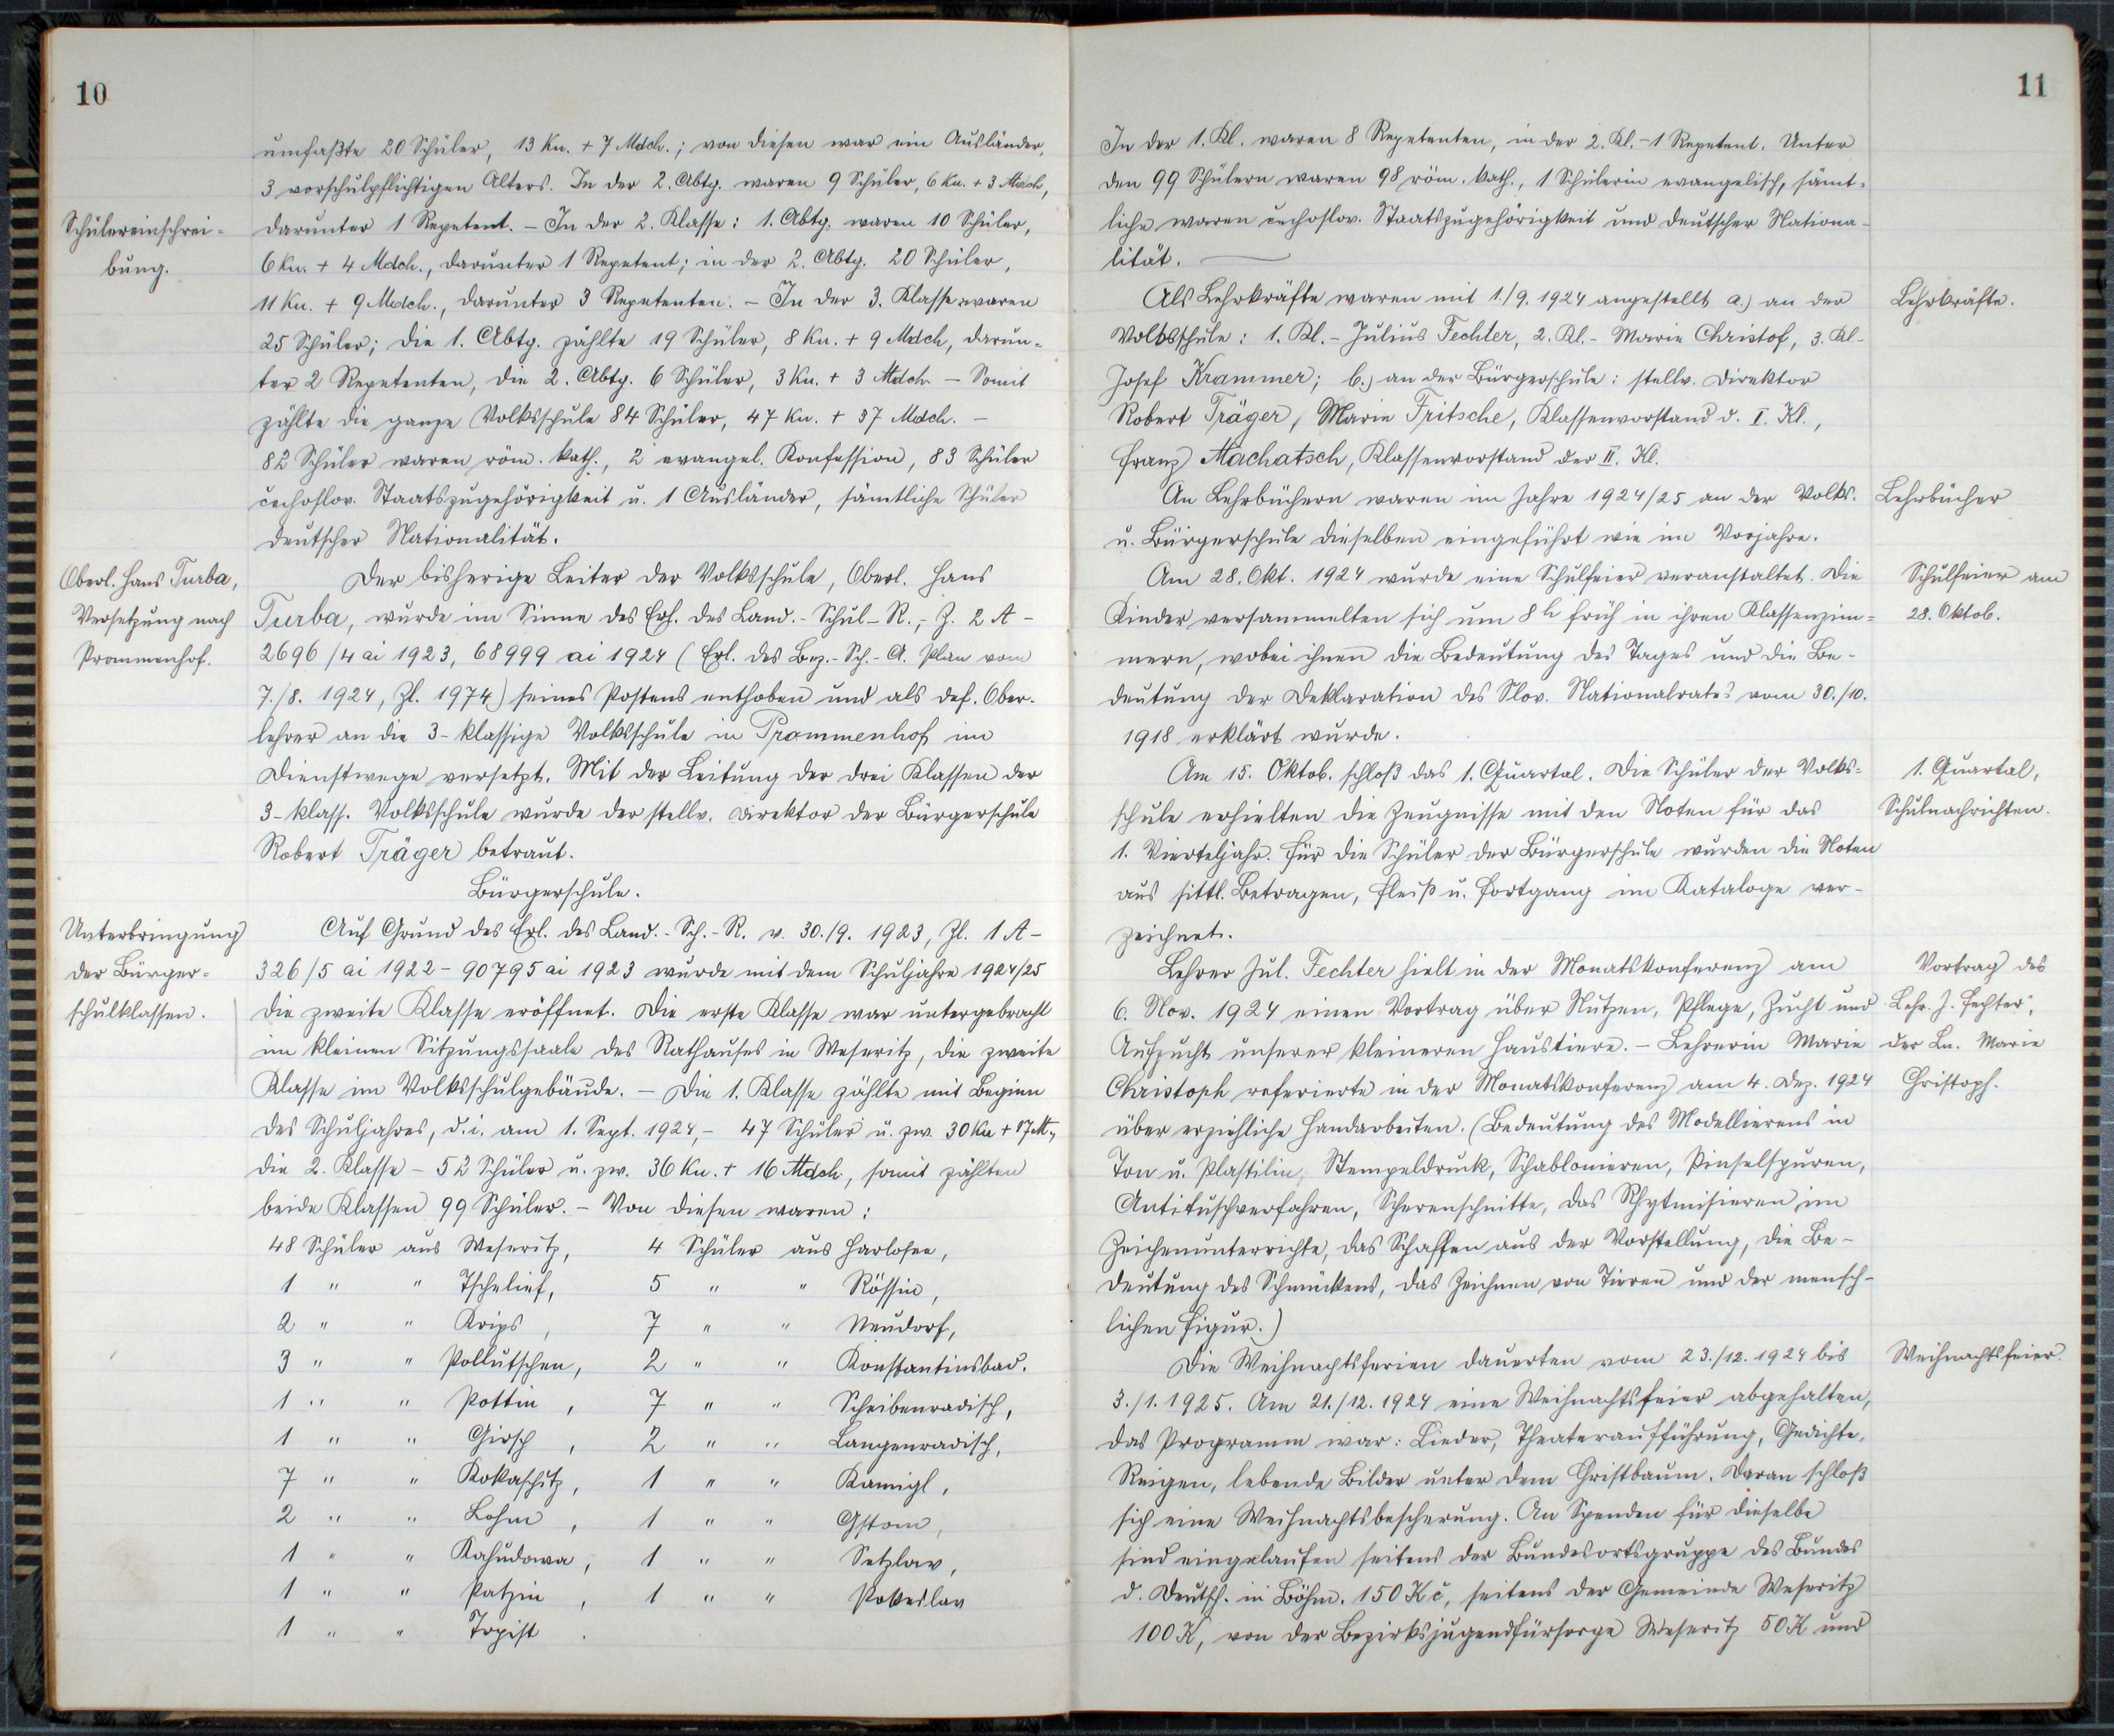 10
umfaßte 20 Schüler, 13 Kn. + 7 Mdch.; von diesen war ein Ausländer,
3 vorschulpflichtigen Alters. In der 2. Abtg. waren 9 Schüler, 6 Kn. + 3 Mdch,
Schülereinschrei-
bung.
darunter 1 Repetent. – In der 2. Klasse: 1. Abtg. waren 10 Schüler,
6 Kn. + 4 Mdch., darunter 1 Repetent; in der 2. Abtg. 20 Schüler,
11 Kn. + 9 Mdch., darunter 3 Repetenten. – In der 3. Klasse waren
25 Schüler; die 1. Abtg. zählte 19 Schüler, 8 Kn. + 9 Mdch, darun-
ter 2 Repetenten, die 2. Abtg. 6 Schüler, 3 Kn. + 3 Mdch – Somit
zählte die ganze Volksschule 84 Schüler, 47 Kn. + 37 Mdch. –
82 Schüler waren röm. kath., 2 evangel. Konfession, 83 Schüler
čechoslov. Staatszugehörigkeit u. 1 Ausländer, sämtliche Schüler
deutscher Nationalität.
Oberl. Hans Turba,
Versetzung nach
Prommenhof.
Der bisherige Leiter der Volksschule, Oberl. Hans
Turba, wurde im Sinne des Erl. des Land.-Schul-R., Z. 2 A –
2696/4 ai 1923, 68999 ai 1924 (Erl. des Bez.-Sch.-A. Plan vom
7./8. 1924, Zl. 1974) seines Postens enthoben und als def. Ober-
lehrer an die 3-klassige Volksschule in Prommenhof im
Dienstwege versetzt. Mit der Leitung der drei Klassen der
3-klass. Volksschule wurde der stellv. Direktor der Bürgerschule
Robert Träger betraut.
Bürgerschule.
Unterbringung
der Bürger-
schulklassen.
Auf Grund des Erl. des Land.-Sch.-R. v. 30./9. 1923, Zl. 1 A –
326/5 ai 1922 – 90795 ai 1923 wurde mit dem Schuljahre 1924/25
die zweite Klasse eröffnet. Die erste Klasse war untergebracht
im kleinen Sitzungssaale des Rathauses in Weseritz, die zweite
Klasse im Volksschulgebäude. – Die 1. Klasse zählte mit Beginn
des Schuljahres, d. i. am 1. Sept. 1924, – 47 Schüler u. zw. 30 Kn + 17 M.,
die 2. Klasse – 52 Schüler u. zw. 36 Kn. + 16 Mdch., somit zählten
beide Klassen 99 Schüler. – Von diesen waren:
48 Schüler aus Weseritz, 4 Schüler aus Harlosee,
1 " " Tschelief, 5 " " Rössin,
2 " " Krips, 7 " " Neudorf,
3 " " Pollutschen, 2 " " Konstantinsbad.
1 " " Pottin, 7 " " Scheibenradisch,
1 " " Girsch, 2 " " Langenradisch,
7 " " Kokaschitz, 1 " " Kamigl,
2 " " Lohm, 1 " " Gstom,
1 " " Kahudowa, 1 " " Setzlav,
1 " " Patzin, 1 " " Pokeslav
1 " " Trpist.
11
In der 1. Kl. waren 8 Repetenten, in der 2. Kl. – 1 Repetent. Unter
den 99 Schülern waren 98 röm. kath., 1 Schülerin evangelisch, sämt-
liche waren čechoslov. Staatszugehörigkeit und deutscher Nationa-
lität. –
Als Lehrkräfte waren mit 1./9. 1924 angestellt a.) an der
Lehrkräfte.
Volksschule: 1. Kl. – Julius Fechter, 2. Kl. – Marie Christof, 3. Kl –
Josef Krammer; b.) an der Bürgerschule: stellv. Direktor
Robert Träger, Marie Fritsche, Klassenvorstand d. I. Kl.,
Franz Machatsch, Klassenvorstand der II. Kl.
An Lehrbüchern waren im Jahre 1924/25 an der Volks-
Lehrbücher
u. Bürgerschule dieselben eingeführt wie im Vorjahre.
Am 28. Okt. 1924 wurde eine Schulfeier veranstaltet. Die
Schulfeier am
28. Oktob.
Kinder versammelten sich um 8 h früh in ihren Klassenzim-
mern, wobei ihnen die Bedeutung des Tages und die Be-
deutung der Deklaration des Slov. Nationalrates vom 30./10.
1918 erklärt wurde.
Am 15. Oktob. schloß das 1. Quartal. Die Schüler der Volks-
1. Quartal,
Schulnachrichten.
schule erhielten die Zeugnisse mit den Noten für das
1. Vierteljahr. Für die Schüler der Bürgerschule wurden die Noten
aus sittl. Betragen, Fleiß u. Fortgang im Kataloge ver-
zeichnet.
Lehrer Jul. Fechter hielt in der Monatskonferenz am
Vortrag des
Lehr. J. Fechter,
der Ln. Marie
Christoph.
6. Nov. 1924 einen Vortrag über Nutzen, Pflege, Zucht und
Aufzucht unserer kleineren Haustiere. – Lehrerin Marie
Christoph referierte in der Monatskonferenz am 4. Dez. 1924
über erziehliche Handarbeiten. (Bedeutung des Modellierens in
Ton u. Plastilin, Stempeldruck, Schablonieren, Pinselspuren,
Antituschverfahren, Scherenschnitte, das Rhytmisieren im
Zeichenunterrichte, das Schaffen aus der Vorstellung, die Be-
deutung des Schmückens, das Zeichnen von Tieren und der mensch-
lichen Figur.)
Die Weihnachtsferien dauerten vom 23./12. 1924 bis
Weihnachtsfeier.
3./1. 1925. Am 21./12. 1924 eine Weihnachtsfeier abgehalten,
das Programm war: Lieder, Theateraufführung, Gedichte,
Reigen, lebende Bilder unter dem Christbaum. Daran schloß
sich eine Weihnachtsbescherung. An Spenden für dieselbe
sind eingelaufen seitens der Bundesortsgruppe des Bundes
d. Deutsch. in Böhm. 150 Kč, seitens der Gemeinde Weseritz
100 K, von der Bezirksjugendfürsorge Weseritz 50 K und